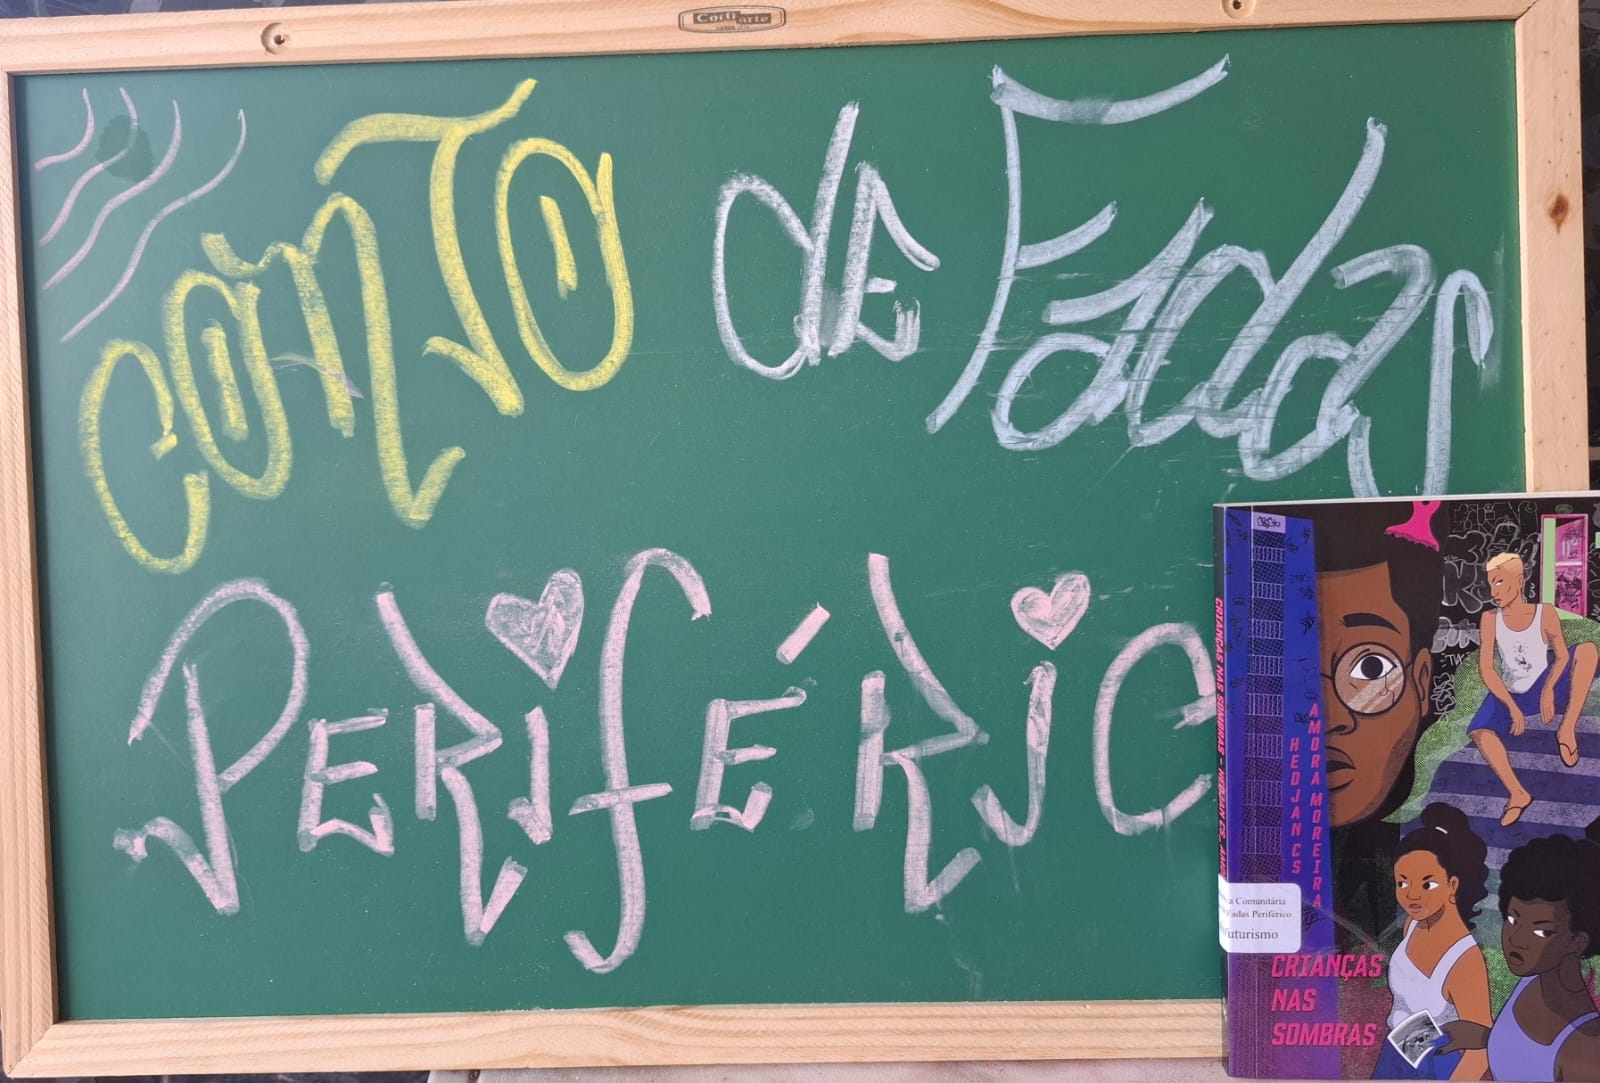 Cortiarte
CONTO de Fadas
PERifÉRiC
CRIANÇAS NAS SOMBRAS - HEDJAN CS, AMO
HEDJAN CS
AMORA MOREIRA
a Comunitária
Fadas Periférico
futurismo
CRIANÇAS
NAS
SOMBRAS